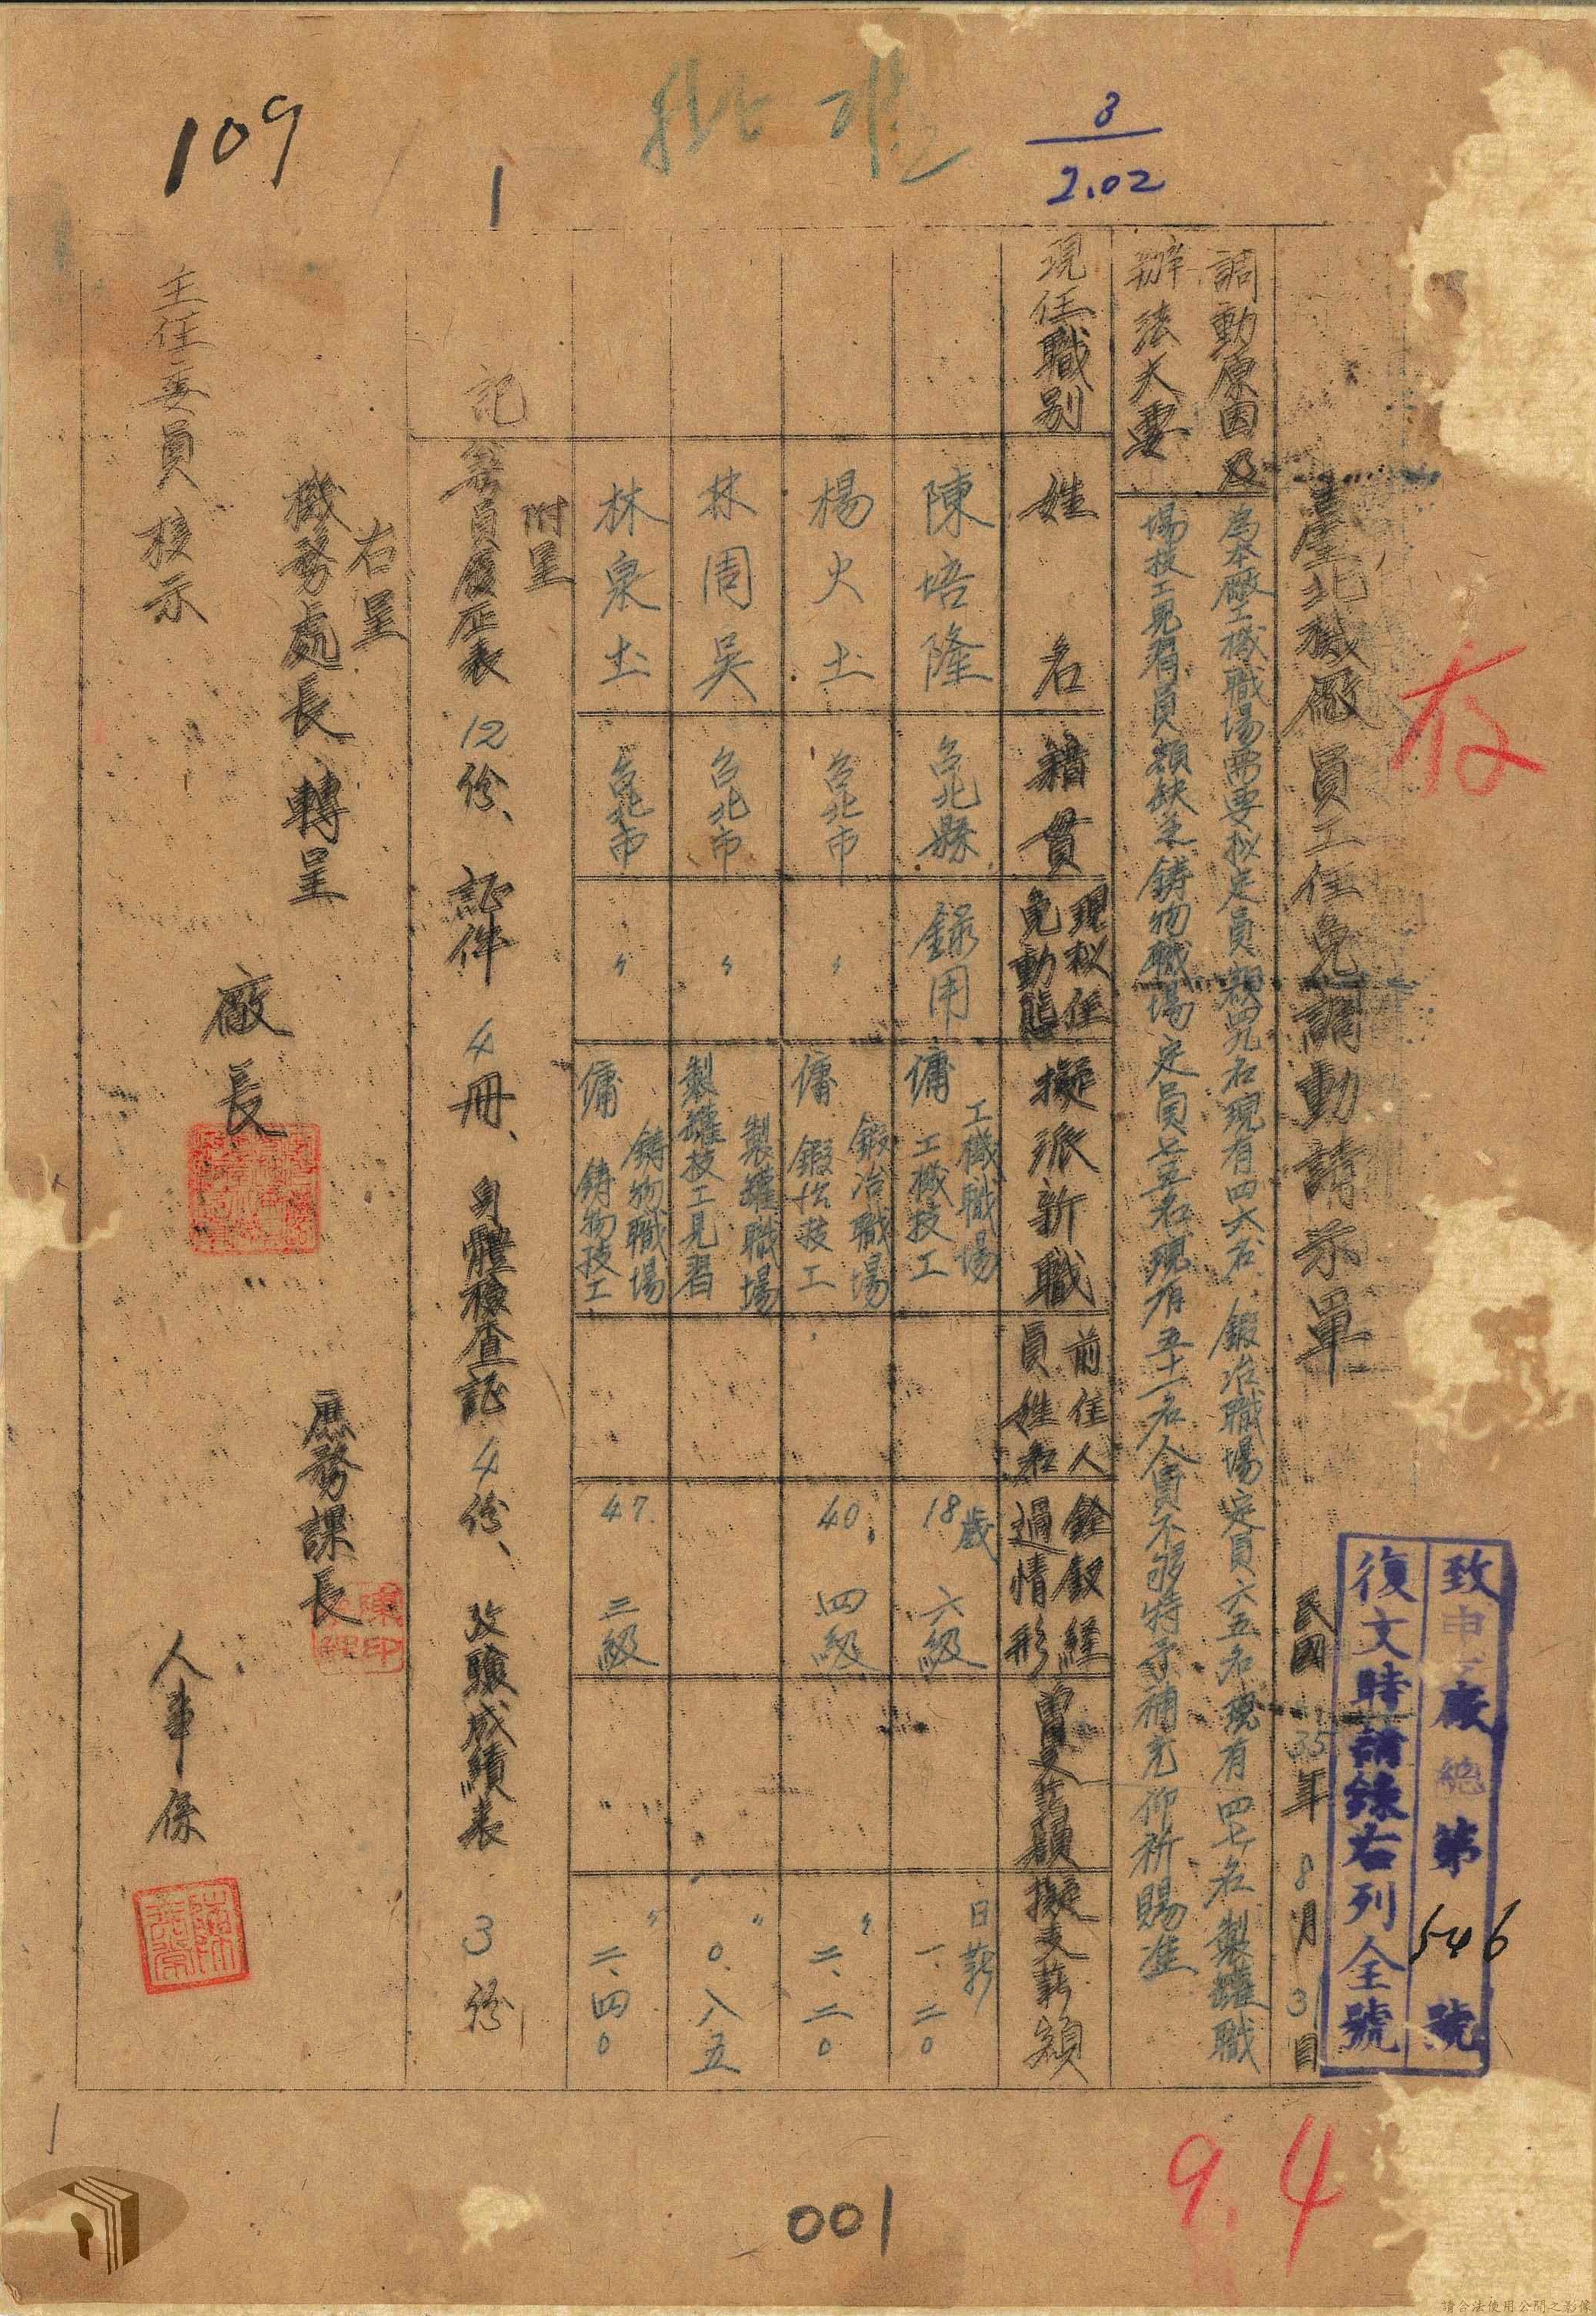 109
1
批准
3
2.02
存
致申厰總第546號
復文時請錄右列全號
臺北機廠員工任免調動請示單
民國35年8月31日
調動原因及
辦法大要
為本廠工機職場需要拟定員額四九名現有四六名鍛冶職場定員六五名現有四七名製罐職
場技工見習員額缺乏鑄物職場定員七五名現有五十一名人員不够特予補充仰祈賜准
現任職别
姓名
籍貫
現拟任
免動態
擬派新職
前任人
員姓名
銓敘経
過情形
曾支薪額
擬支薪額
陳培隆
台北縣
錄用
工機職場
傭 工機技工
18歲 六級
日薪
一.二〇
楊火土
台北市
〃
鍛冶職場
傭 鍛冶技工
40. 四級
〃
二.二〇
林周吳
台北市
〃
製罐職場
製罐技工見習
〃
〇.八五
林泉土
台北市
〃
鑄物職場
傭 鑄物技工
47. 三級
〃
二.四〇
附呈
記
員履歴表12份、証件4冊、身體檢查証4份、攷驗成績表3份
右呈
機務處長轉呈
主任委員核示
廠長
庶務課長
人事係
9.4
001
請合法使用公開之影像